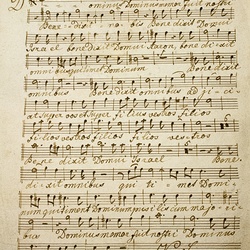 ominus Dominus memor fuit nostri
Bene dixit no bis Bene dixit Domui
Israel bene dixit Domui Aaron, bene dixit
omnibus qui timent Dominum Bene dixit
omnibus Bene dixit omnibus adji
at super vos et super filios vestros
filios vestros filios filios vestros
Bene dixit Domui Israel Bene
dixit omnibus qui ti ment Domi
num qui timent Dominum pusillis cum majori
bus Dominus memor fuit nostri Dominus